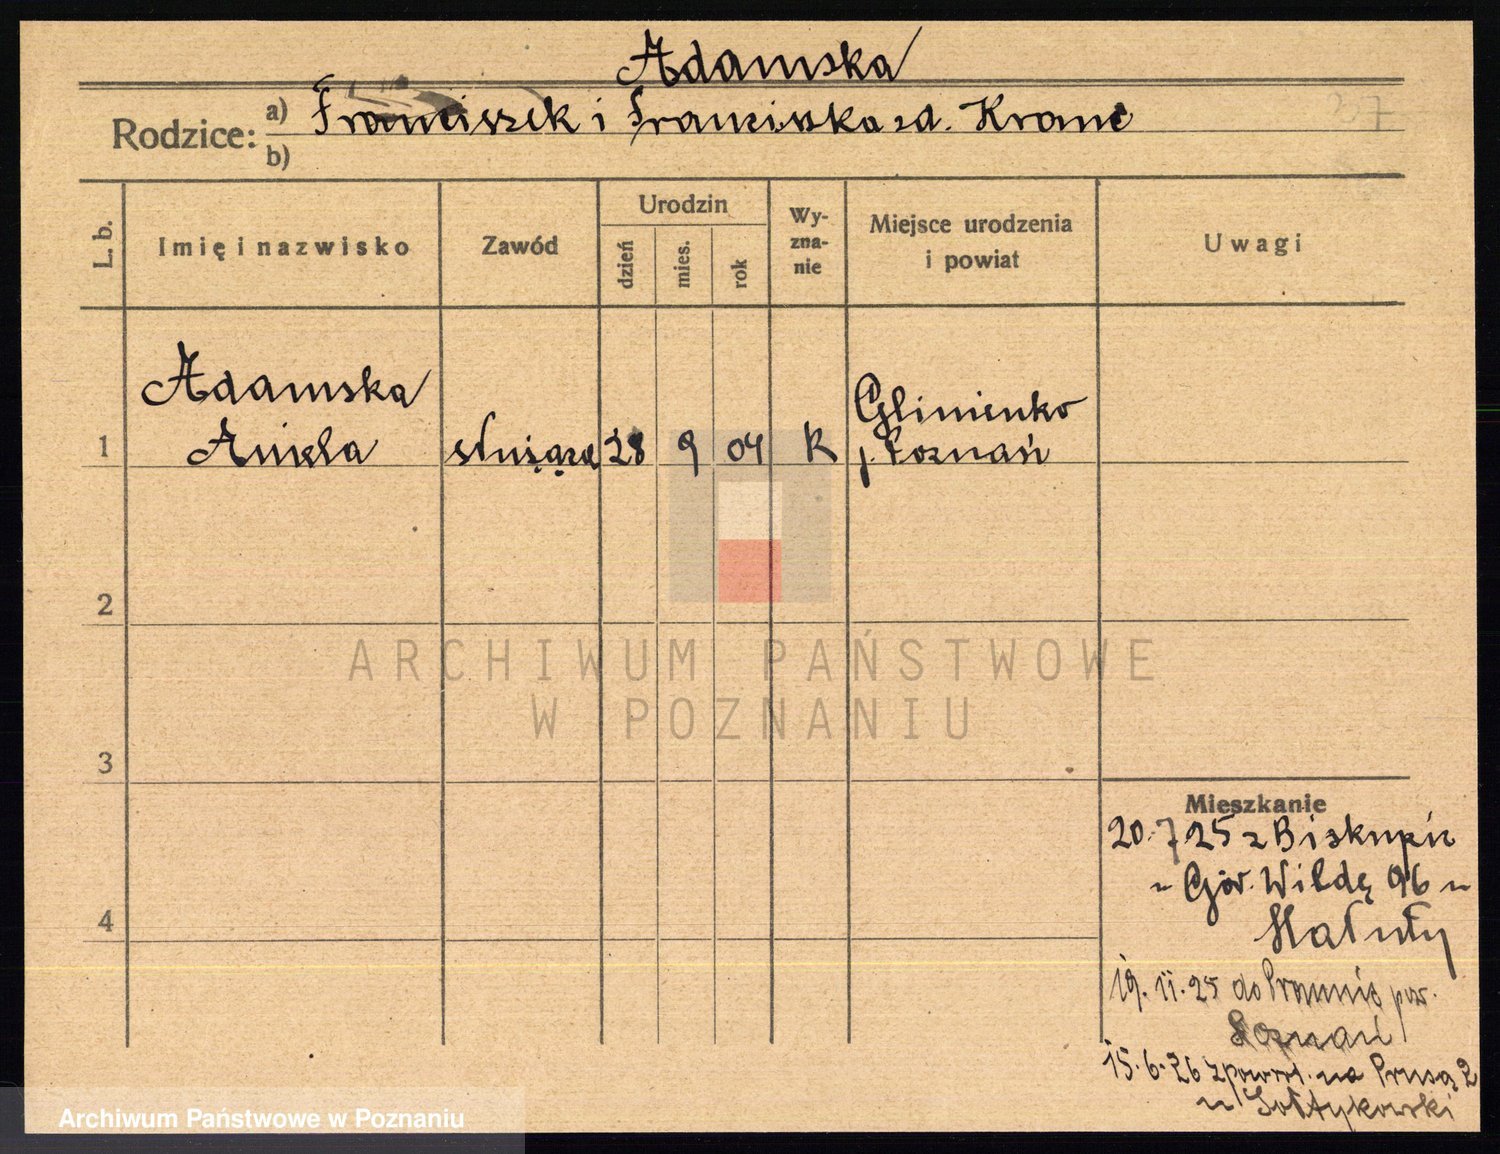 Adamska
Rodzice: a) Franciszek i Franciszka zd. Kranc
b)
L. b.
Imię i nazwisko
Zawód
Urodzin
dzień
mies.
rok
Wy-
zna-
nie
Miejsce urodzenia
i powiat
Uwagi
Adamska
1 Aniela służąca 28 9 04 K
Glinienko
p. Poznań
2
3
4
ARCHIWUM PAŃSTWOWE
W POZNANIU
Mieszkanie
20.7 25 z Biskupic
Gór. Wildę 96 u
Hałuty
19.11.25 do pow.
Poznań
15.6.26 zpowrot. na Prusa 2
u Sołtykowski
Archiwum Państwowe w Poznaniu